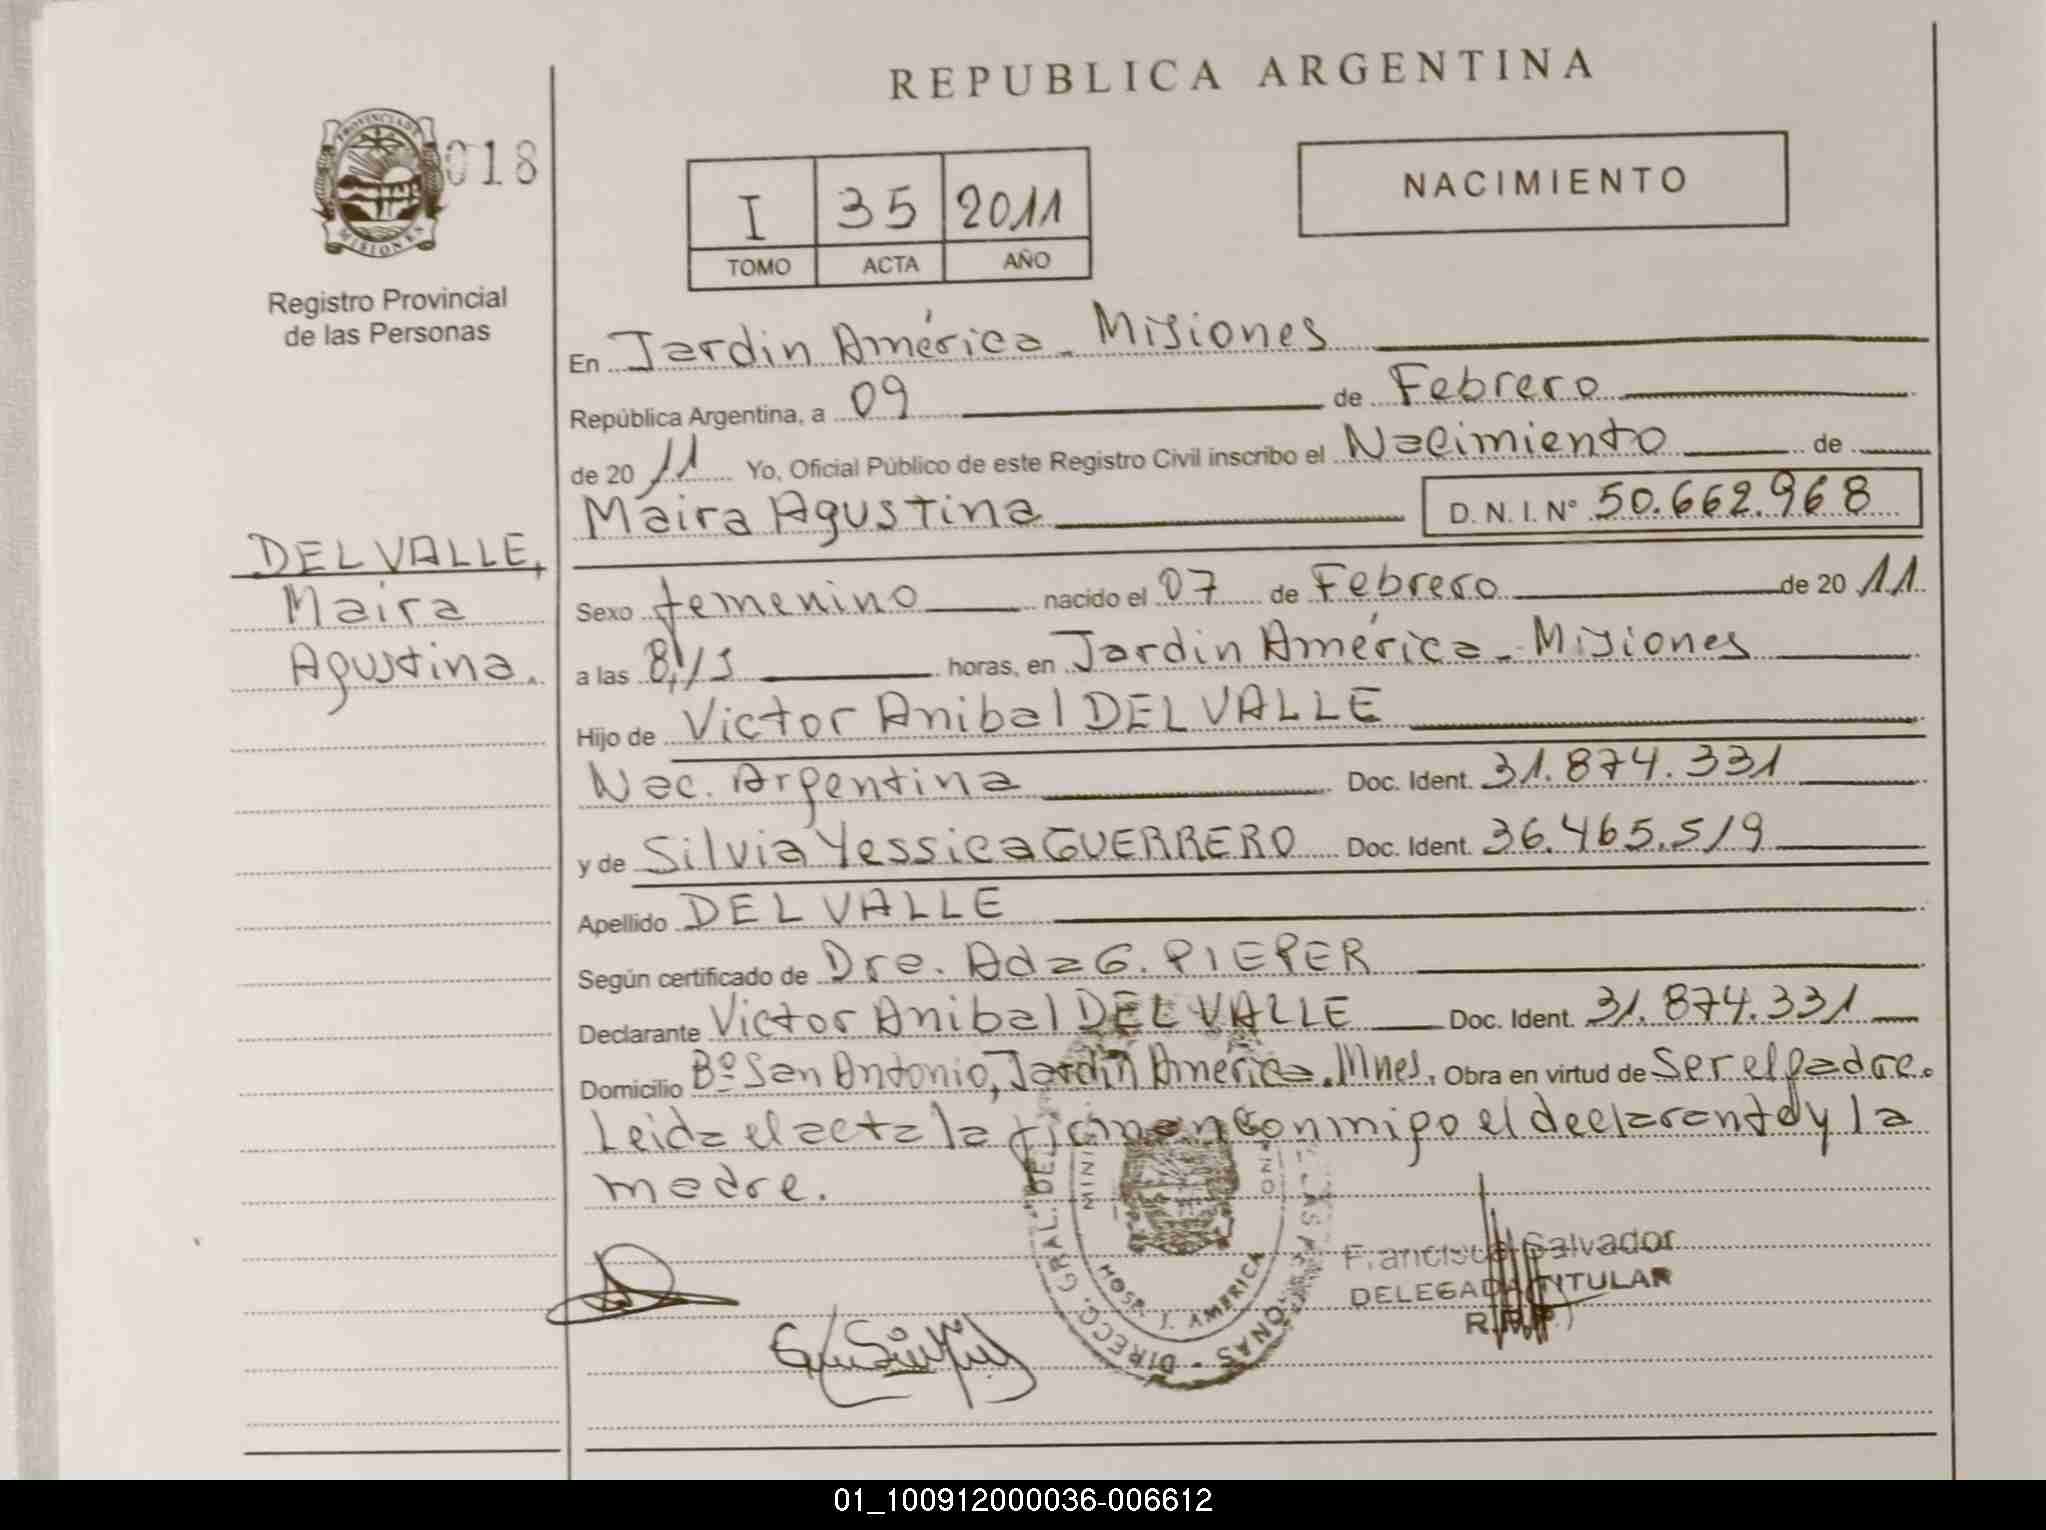 REPUBLICA ARGENTINA
PROVINCIA DE
MISIONES
018
Registro Provincial
de las Personas
I 35 2011
TOMO ACTA AÑO
NACIMIENTO
En Jardin América - Misiones
República Argentina, a 09 de Febrero
de 20 11 Yo, Oficial Público de este Registro Civil inscribo el Nacimiento de
Maira Agustina D.N.I. Nº 50.662.968
DEL VALLE,
Maira
Agustina.
Sexo femenino nacido el 07 de Febrero de 20 11
a las 8,15 horas, en Jardin América - Misiones
Hijo de Victor Anibal DEL VALLE
Nac. Argentina Doc. Ident. 31.874.331
y de Silvia Yessica GUERRERO Doc. Ident. 36.465.519
Apellido DEL VALLE
Según certificado de Dra. Ada G. PIEPER
Declarante Victor Anibal DEL VALLE Doc. Ident. 31.874.331
Domicilio Bº San Antonio, Jardin América. Mnes. Obra en virtud de Ser el padre.
Leida el acta la firman conmigo el declarante y la
madre.
DIRECC. GRAL. DEL
HOSP. J. AMERICA
Francisco Salvador
DELEGADA TITULAR
01_100912000036-006612